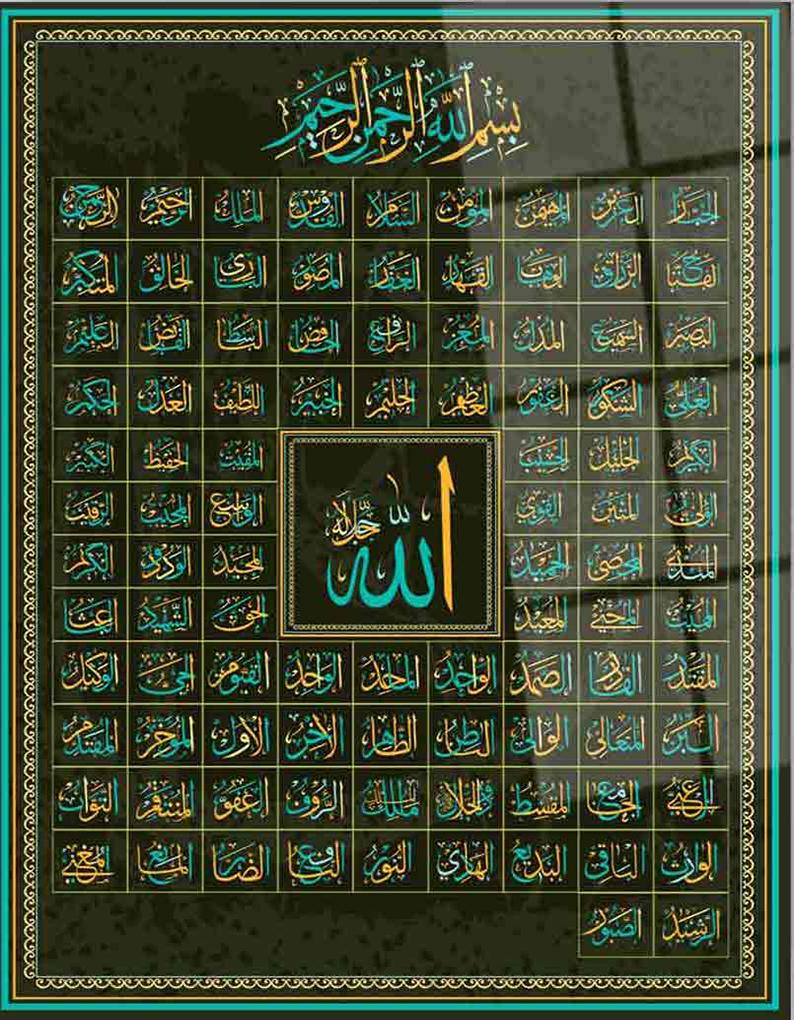 بِسْمِ اللَّهِ الرَّحْمَنِ الرَّحِيمِ
الرحمن الرحيم الملك القدوس السلام المؤمن المهيمن العزيز الجبار
المتكبر الخالق البارئ المصور الغفار القهار الوهاب الرزاق الفتاح
العليم القابض الباسط الخافض الرافع المعز المذل السميع البصير
الحكم العدل اللطيف الخبير الحليم العظيم الغفور الشكور العلي
الكبير الحفيظ المقيت الحسيب الجليل الكريم
الرقيب المجيب الواسع القوي المتين الولي
الودود المجيد الحميد المحصي المبدئ
الله جل جلاله
الباعث الشهيد الحق المعيد المحيي المميت
الوكيل الحي القيوم الواجد الماجد الواحد الصمد القادر المقتدر
المقدم المؤخر الأول الآخر الظاهر الباطن الوالي المتعالي البر
التواب المنتقم العفو الرؤوف مالك الملك ذو الجلال المقسط الجامع الغني
المغني المانع الضار النافع النور الهادي البديع الباقي الوارث
الرشيد الصبور